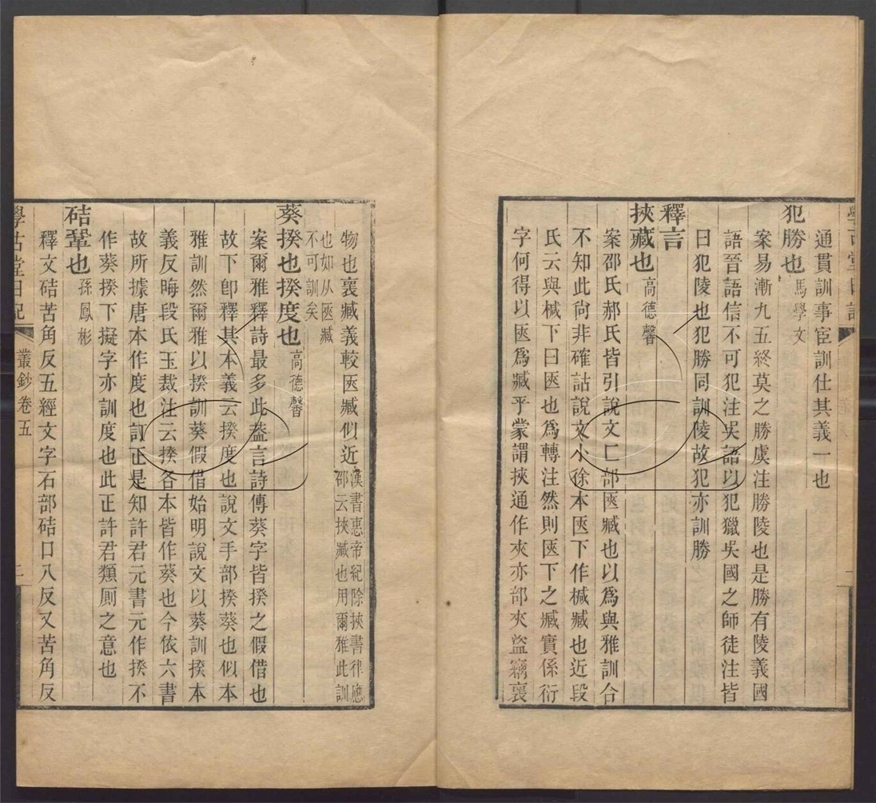 通貫訓事宦訓仕其義一也
犯勝也馬學文
案易漸九五終莫之勝虞注勝陵也是勝有陵義國
語晉語信不可犯注吳語以犯獵吳國之師徒注皆
曰犯陵也犯勝同訓陵故犯亦訓勝
釋言
挾藏也高德馨
案邵氏郝氏皆引說文匸部匧臧也以為與雅訓合
不知此尙非確詁說文小徐本匧下作椷臧也近段
氏云與椷下曰匧也為轉注然則匧下之臧實係衍
字何得以匧爲臧乎蒙謂挾通作夾亦部夾盜竊褱
物也褱臧義較匧臧似近漢書惠帝紀除挾書律應
邵云挾臧也用爾雅此訓
也如从匧臧
不可訓矣
葵揆也揆度也高德馨
案爾雅釋詩最多此葢言詩傳葵字皆揆之假借也
故下卽釋其本義云揆度也說文手部揆葵也似本
雅訓然爾雅以揆訓葵假借始明說文以葵訓揆本
義反晦段氏玉裁注云揆各本皆作葵也今依六書
故所據唐本作度也訂正是知許君元書元作揆不
作葵揆下擬字亦訓度也此正許君類厕之意也
硈鞏也孫鳳彬
釋文硈苦角反五經文字石部硈口八反又苦角反
學古堂日記
叢鈔卷五
二